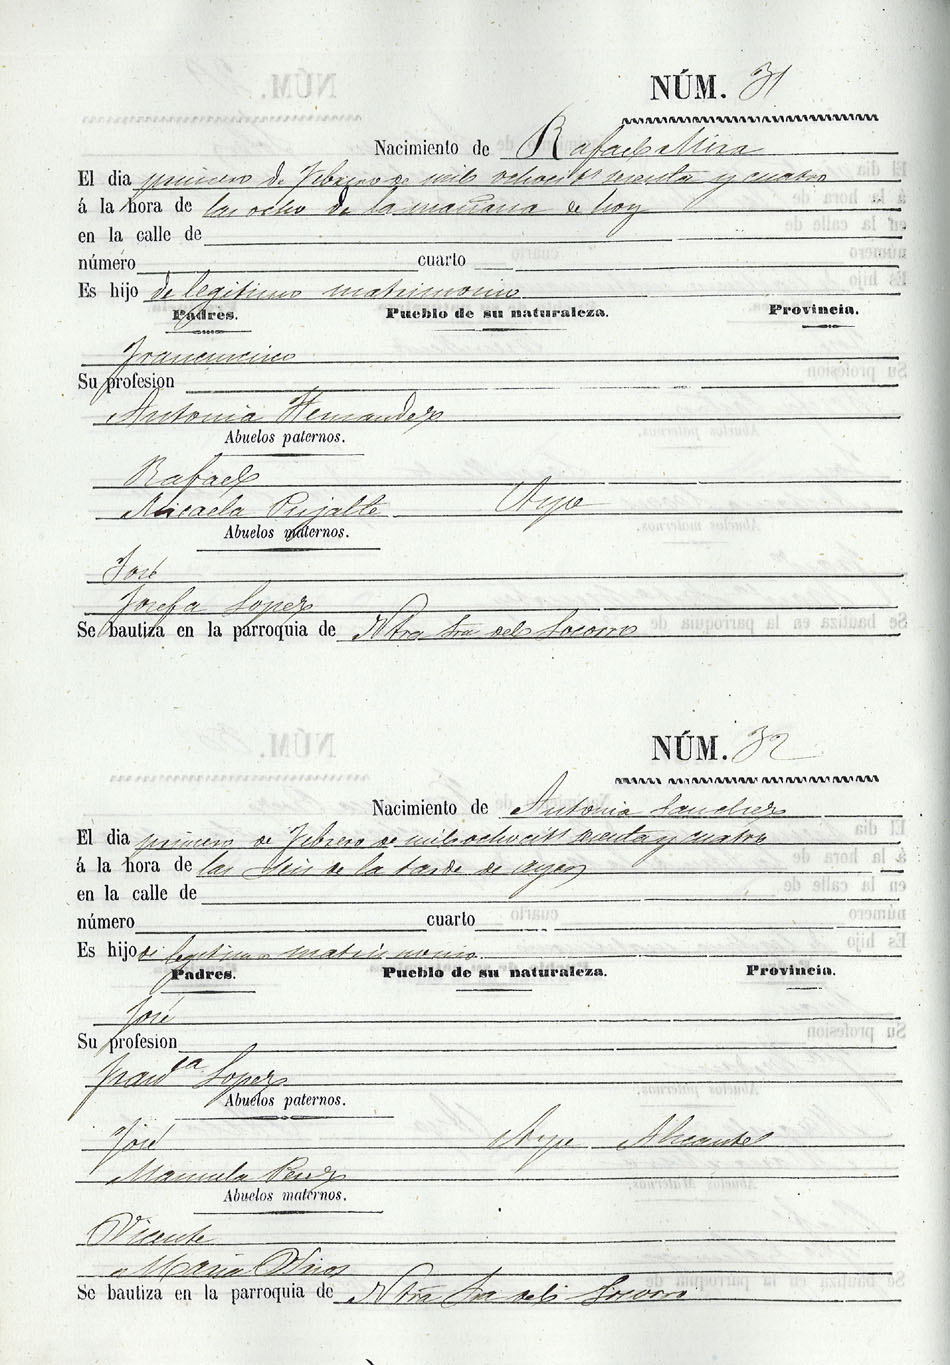 NÚM. 31
Nacimiento de Rafael Mira
El dia primero de Febrero de mil ochoctos setenta y cuatro
á la hora de las ocho de la mañana de hoy
en la calle de
número cuarto
Es hijo de legitimo matrimonio
Padres. Pueblo de su naturaleza. Provincia.
Su profesion
Antonia Hernandez
Abuelos paternos.
Rafael
Micaela Pujalte Aspe
Abuelos maternos.
José
Josefa Lopez
Se bautiza en la parroquia de Ntra Sra del Socorro
NÚM. 32
Nacimiento de Antonia Sanchez
El dia primero de Febrero de mil ochocits setenta y cuatro
á la hora de las seis de la tarde de ayer
en la calle de
número cuarto
Es hijo de legitimo matrimonio
Padres. Pueblo de su naturaleza. Provincia.
José
Su profesion
Franca Lopez
Abuelos paternos.
José Aspe Alicante
Manuela Perez
Abuelos maternos.
Vicente
Maria
Se bautiza en la parroquia de Ntra Sra del Socorro